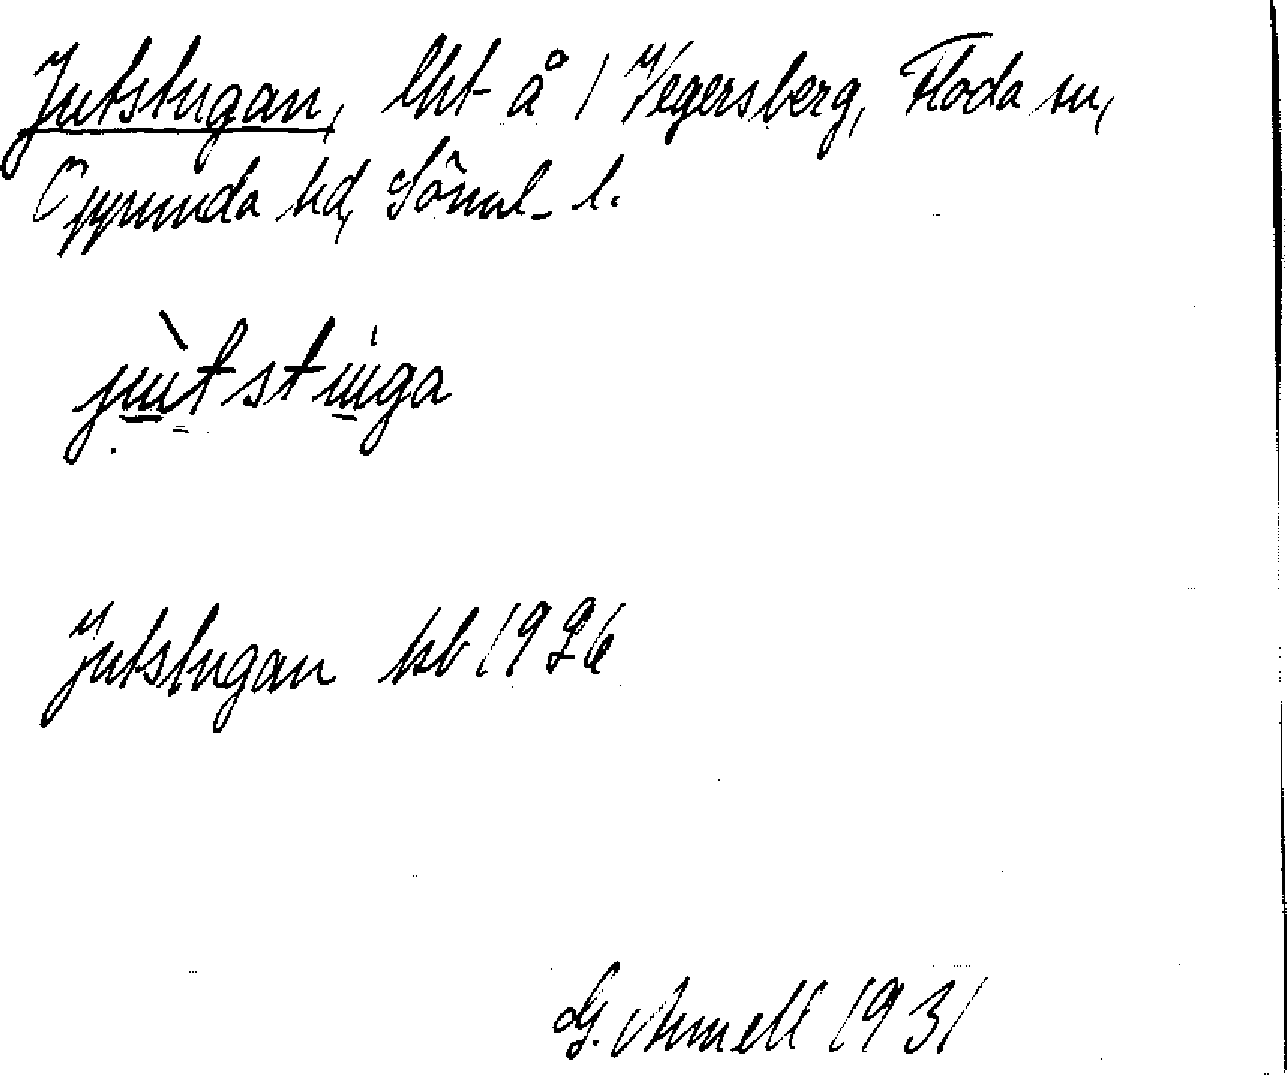 Jutstugan, lht å 1 Vegersberg, Floda sn,
Oppunda hd, Söml. l.
jutstuga
Jutstugan kb 1926
G. Ármell 1931